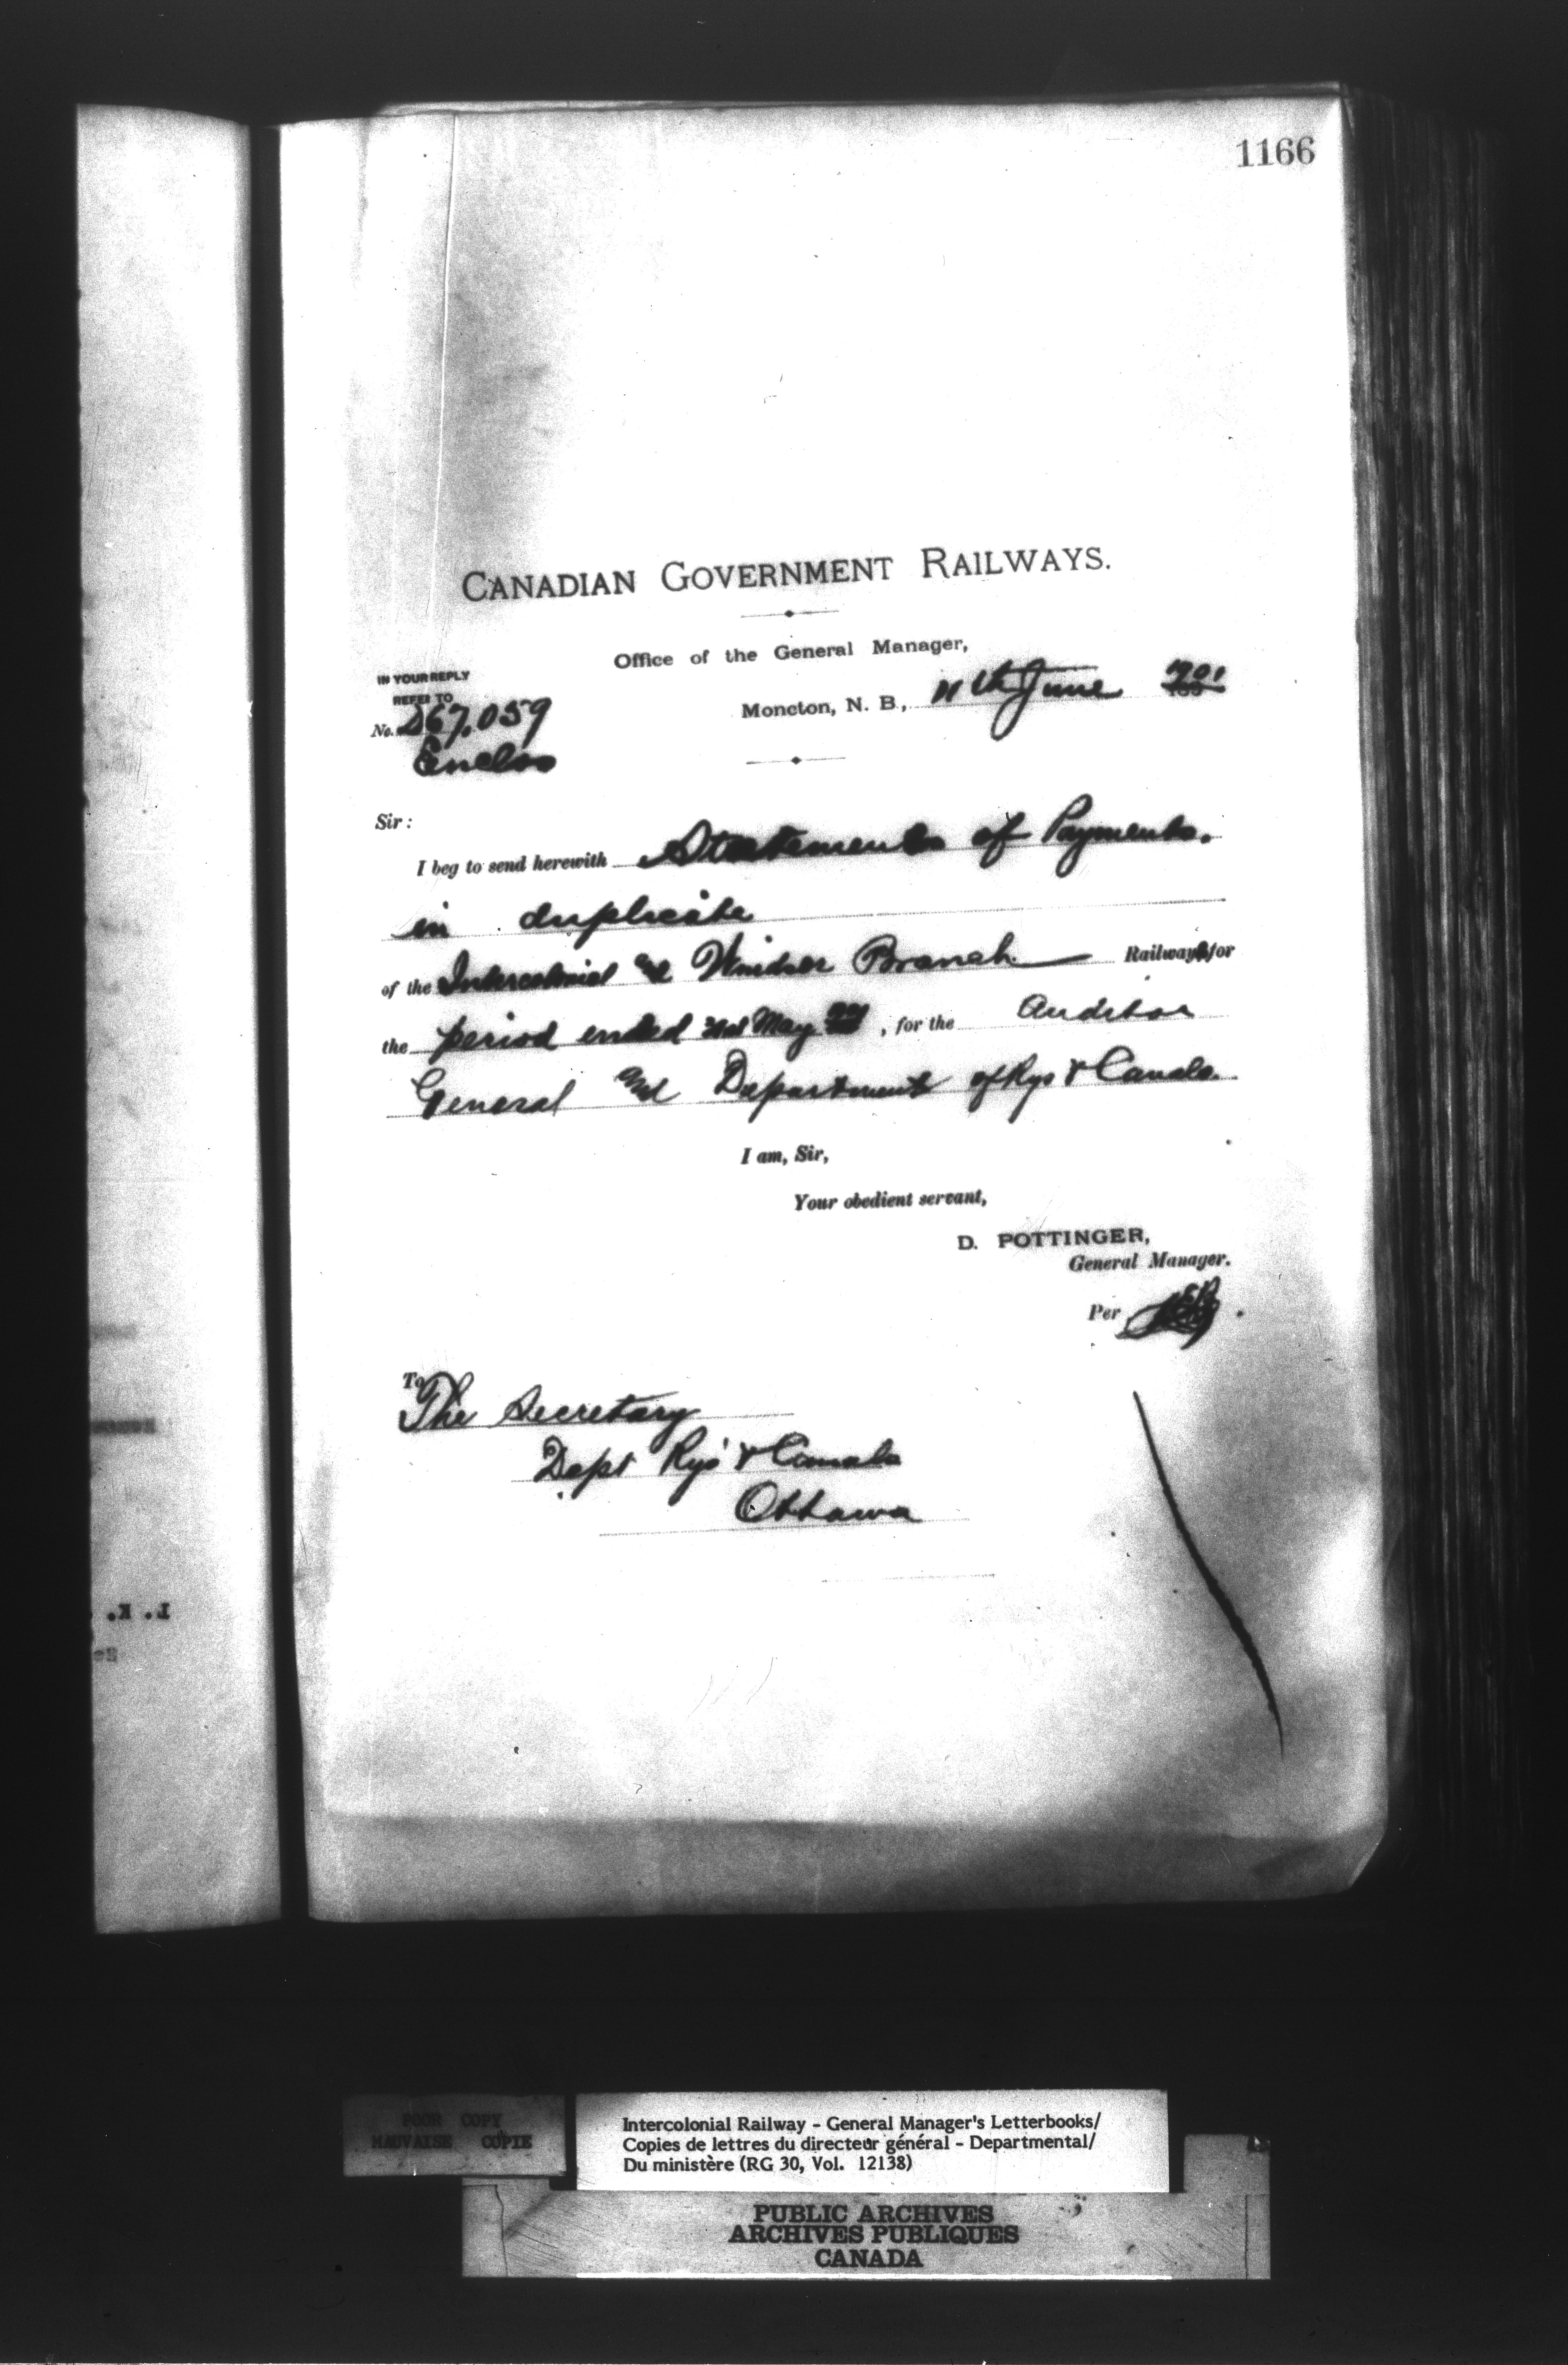 1166
CANADIAN GOVERNMENT RAILWAYS.
Office of the General Manager,
IN YOUR REPLY
REFER TO
Moncton, N. B., 11th June 1901
No. D67,059
Enclos
Sir:
I beg to send herewith Statements of Payments.
in duplicate
of the Intercolonial and Windsor Branch Railways for
the period ended 31st May, for the Auditor
General and Department of Rys & Canals.
I am, Sir,
Your obedient servant,
D. POTTINGER,
General Manager.
Per
To
The Secretary
Dept Rys & Canals
Ottawa
POOR COPY
MAUVAISE COPIE
Intercolonial Railway - General Manager's Letterbooks/
Copies de lettres du directeur général - Departmental/
Du ministère (RG 30, Vol. 12138)
PUBLIC ARCHIVES
ARCHIVES PUBLIQUES
CANADA